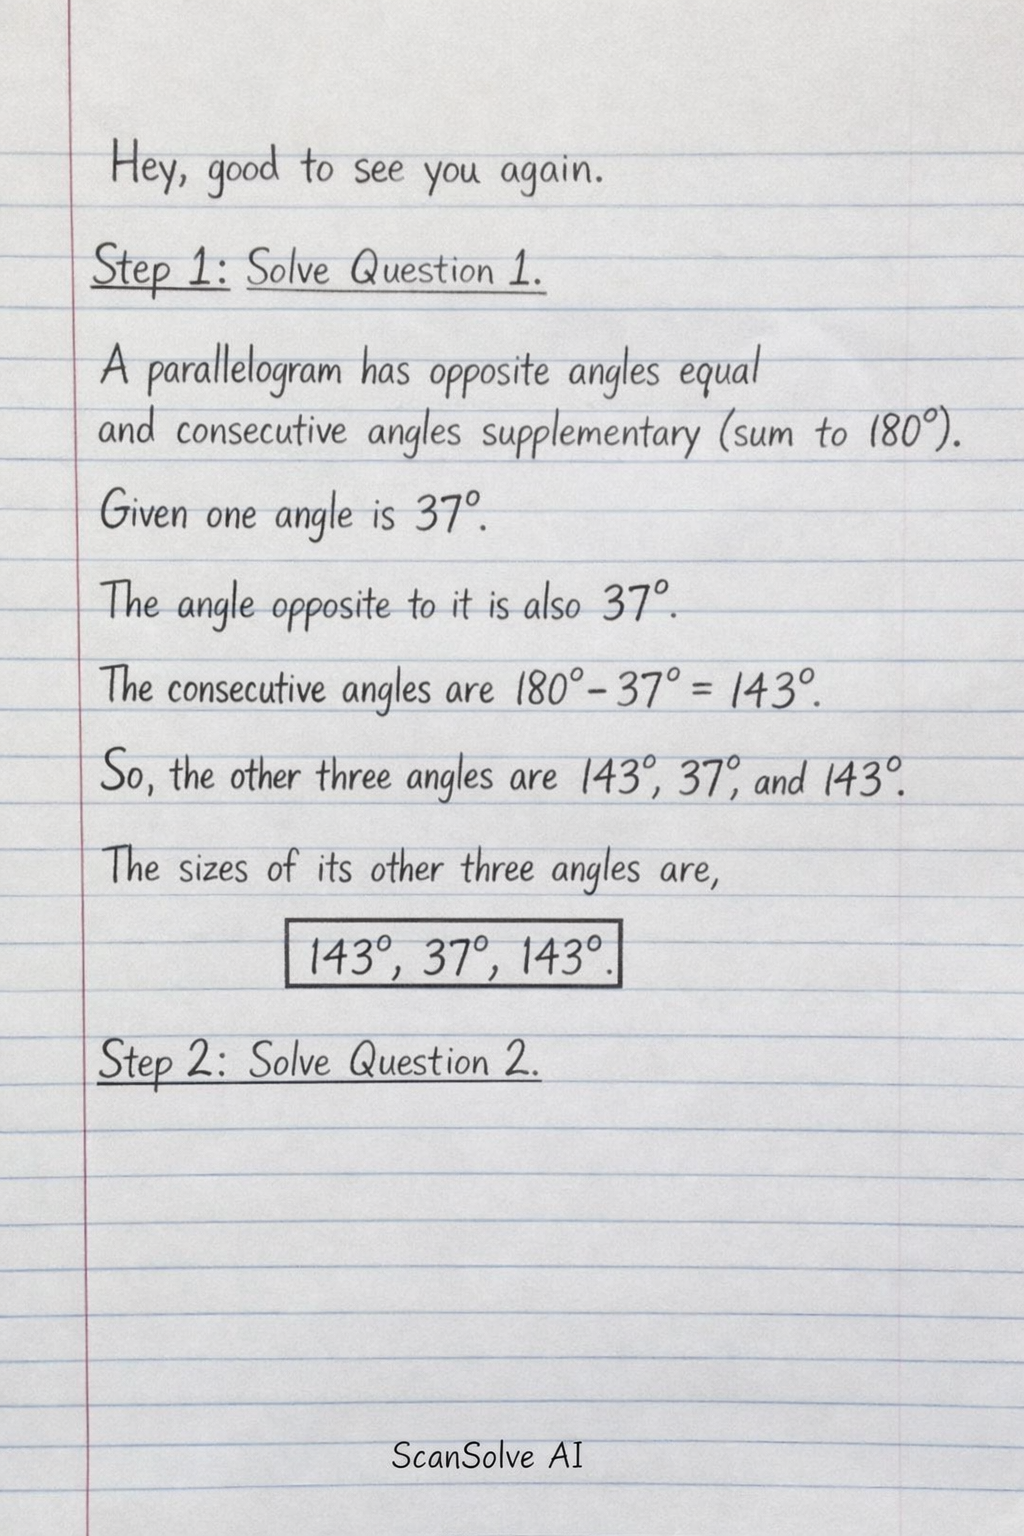 Hey, good to see you again.
Step 1: Solve Question 1.
A parallelogram has opposite angles equal
and consecutive angles supplementary (sum to 180°).
Given one angle is 37°.
The angle opposite to it is also 37°.
The consecutive angles are 180° - 37° = 143°.
So, the other three angles are 143°, 37°, and 143°.
The sizes of its other three angles are,
143°, 37°, 143°.
Step 2: Solve Question 2.
ScanSolve AI